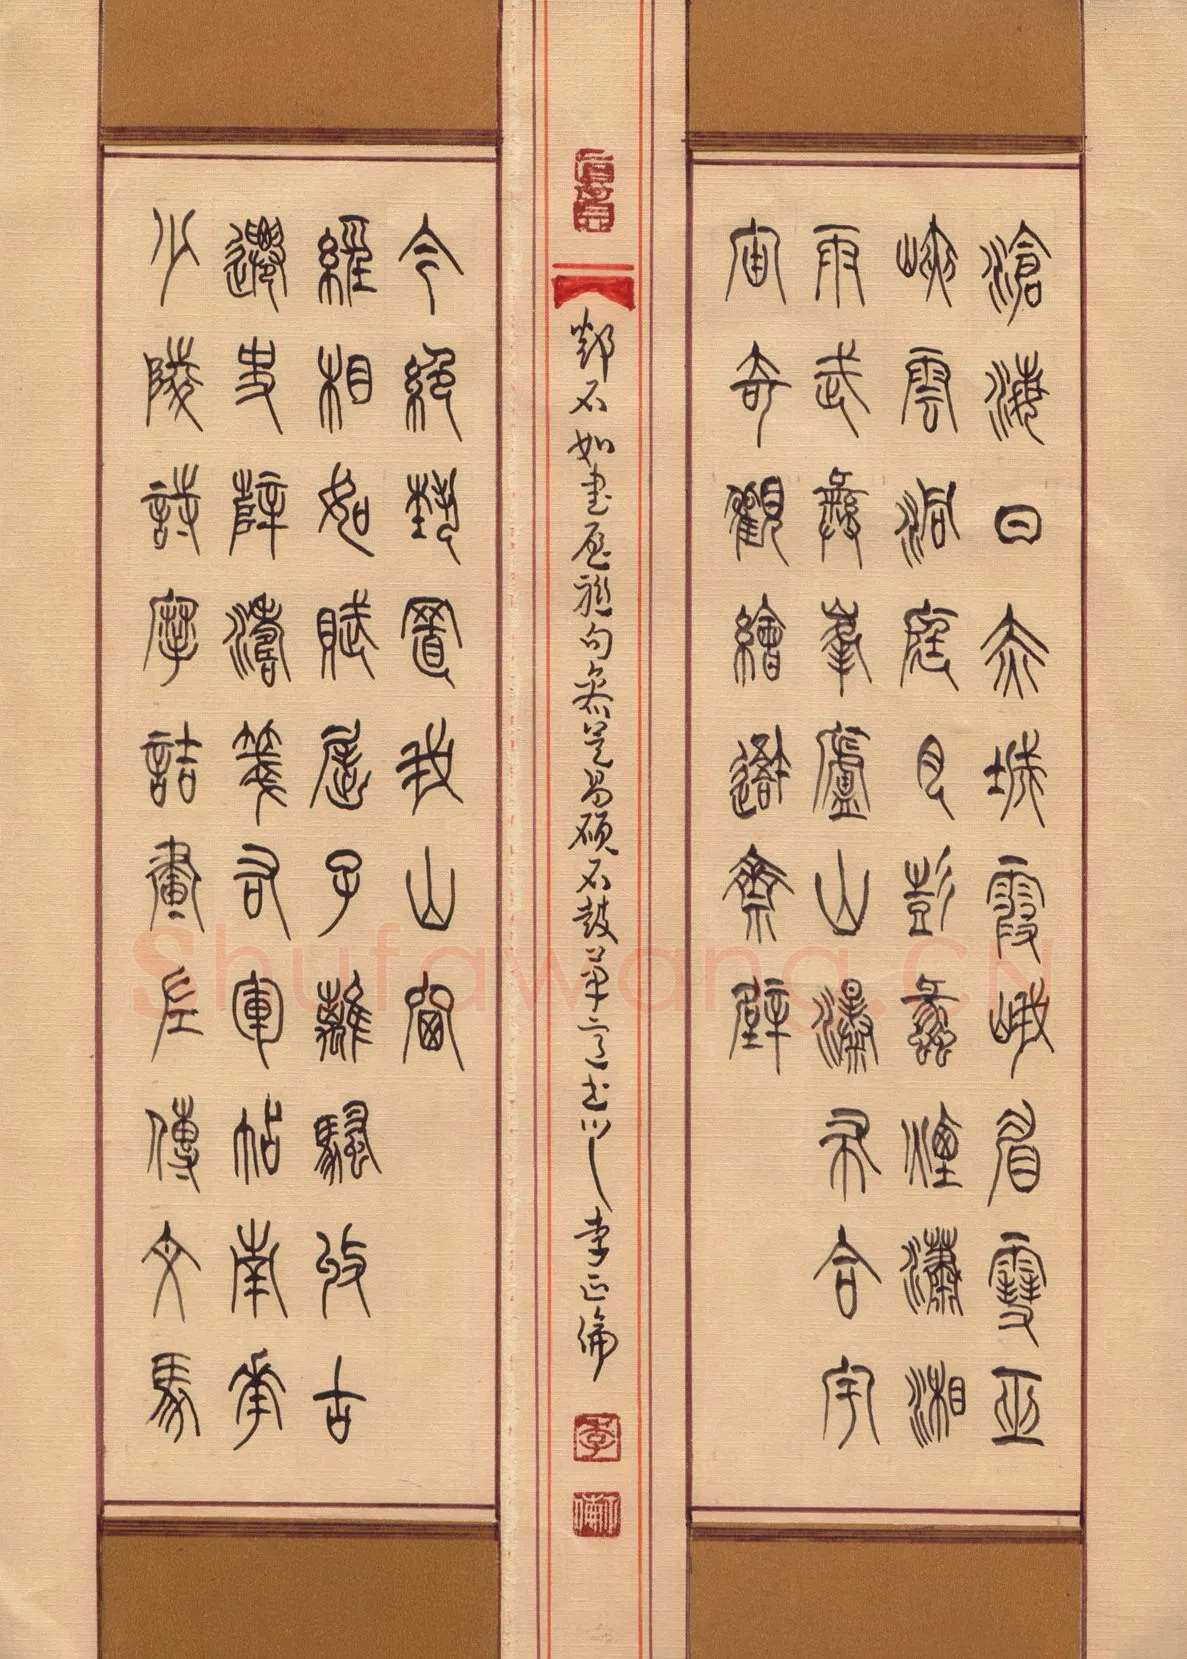 滄海日赤城霞峨眉雪巫
峽雲洞庭月彭蠡煙瀟湘
雨武彝峯廬山瀑布合宇
宙奇觀繪吾齋壁
少陵詩摩詰畫左傳文馬
遷史薛濤箋右軍帖南華
經相如賦屈子離騷收古
今絕藝置我山窗
鄧石如書屋聯句參吳昌碩石鼓筆意書 李正倫
李